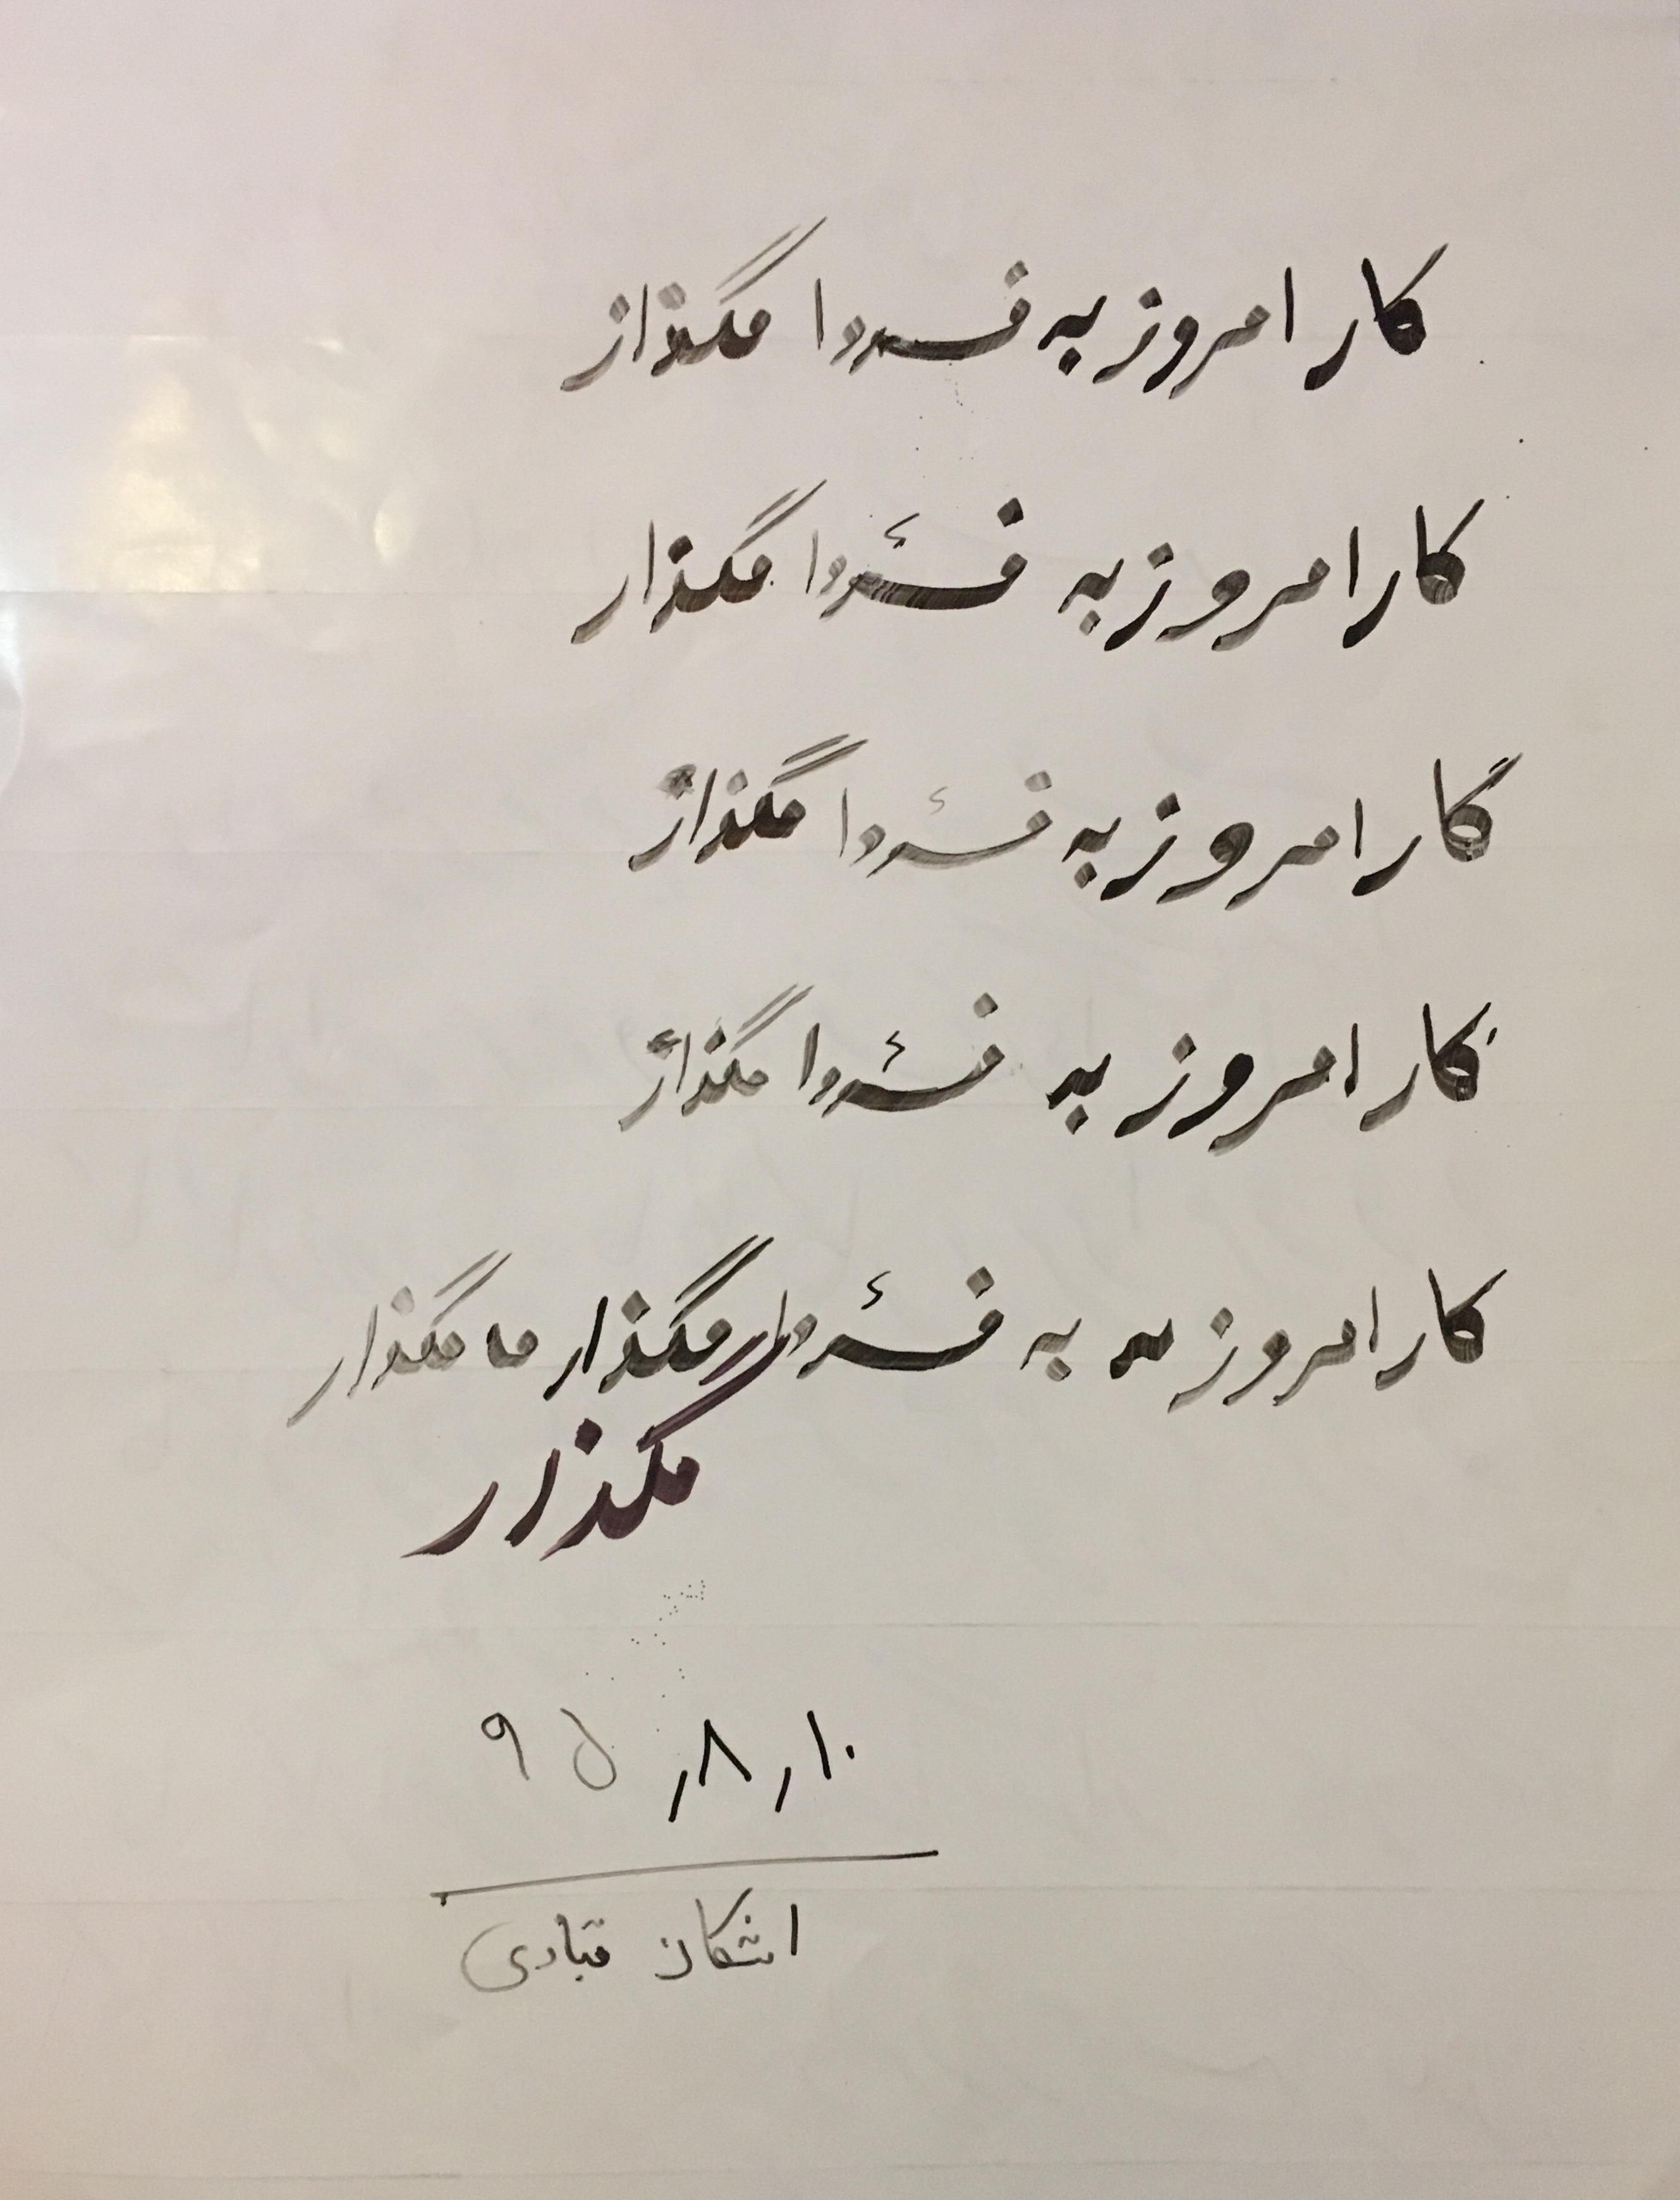 کار امروز به فردا مگذاز
کار امروز به فردا مگذار
کار امروز به فردا مگذاز
کار امروز به فردا مگذاز
کار امروز به به فردا مگذار ما مگذار
مگذار
۱۰ر۸ر۹۵
اشکان قبادی